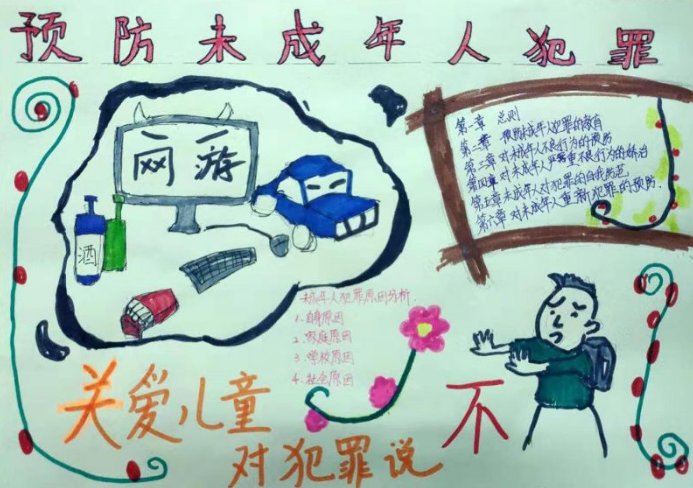 预防未成年人犯罪
网游
酒
第一章 总则
第二章 预防未成年人犯罪的教育
第三章 对未成年人不良行为的预防
第四章 对未成年人严重不良行为的矫治
第五章未成年人对犯罪的自我防范
第六章 对未成年人重新犯罪的预防.
未成年人犯罪原因分析
1. 自身原因
2. 家庭原因
3. 学校原因
4. 社会原因
关爱儿童
对犯罪说
不